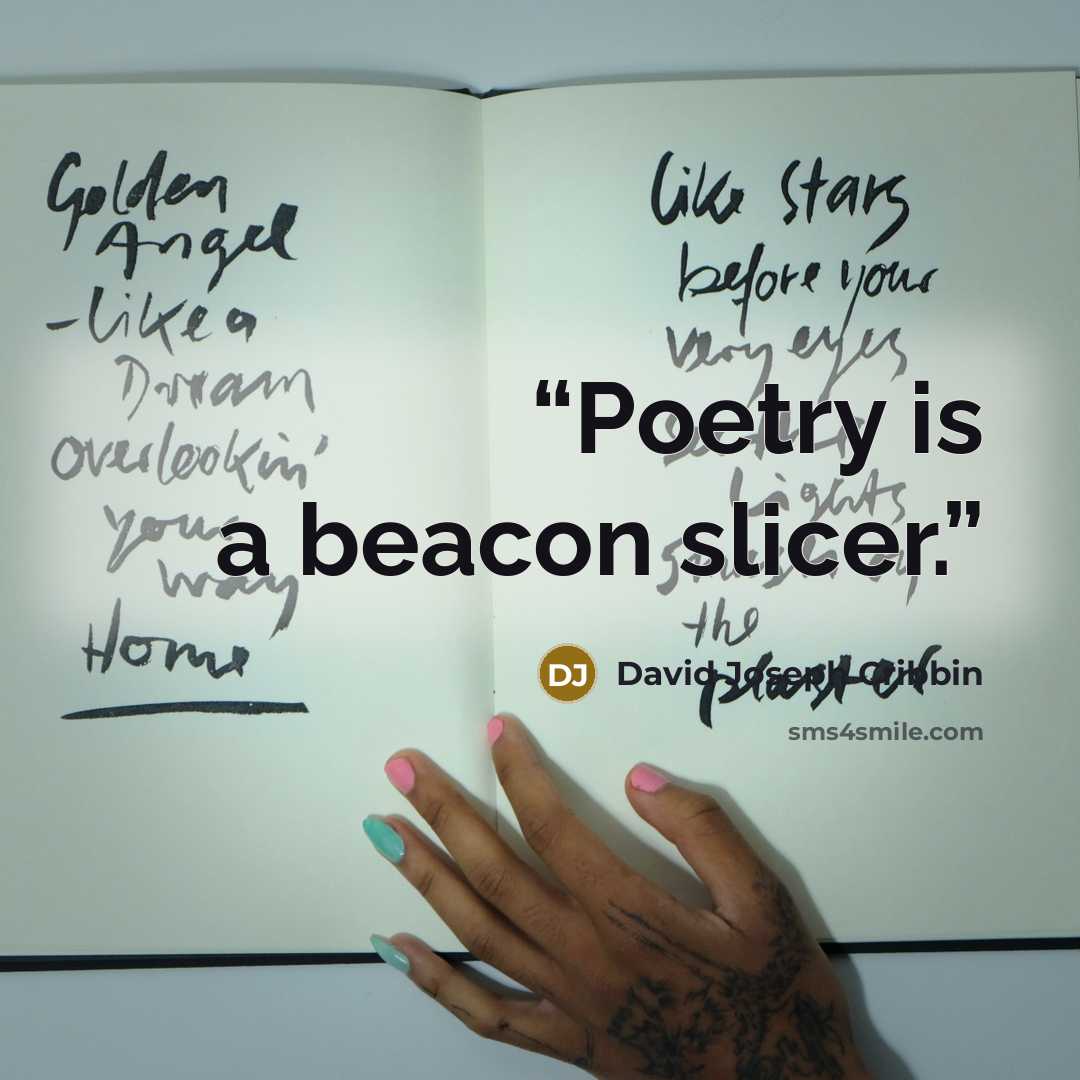 Golden
Angel
-like a
Dream
overlookin'
your
way
Home
like stars
before your
very eyes
Lights
the
plaster
“Poetry is
a beacon slicer.”
DJ David Joseph Cribbin
sms4smile.com